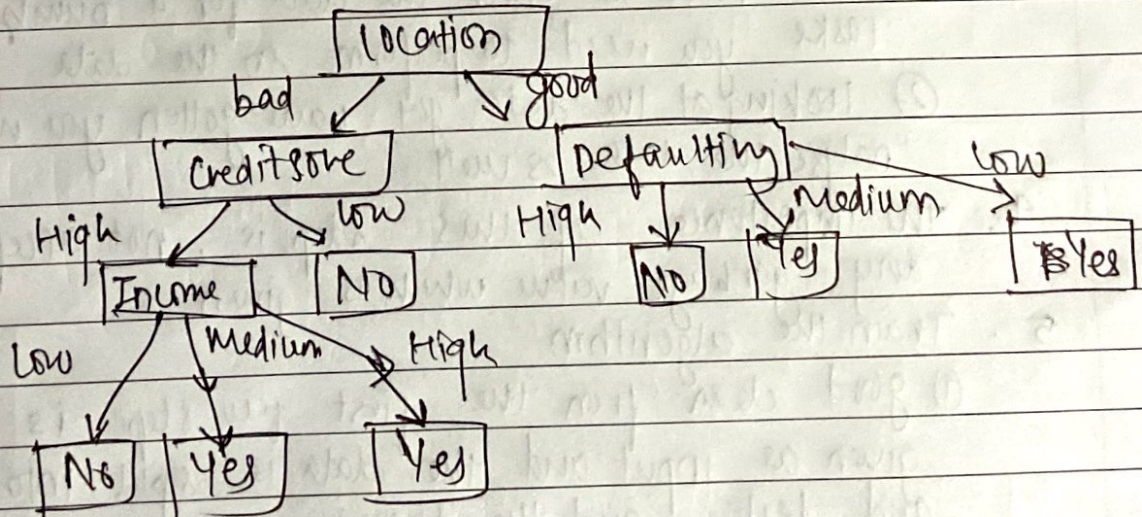 Location
bad good
Creditsore Defaulting Low
High Low High Medium
Income No No Yes Yes
Low Medium High
No Yes Yes